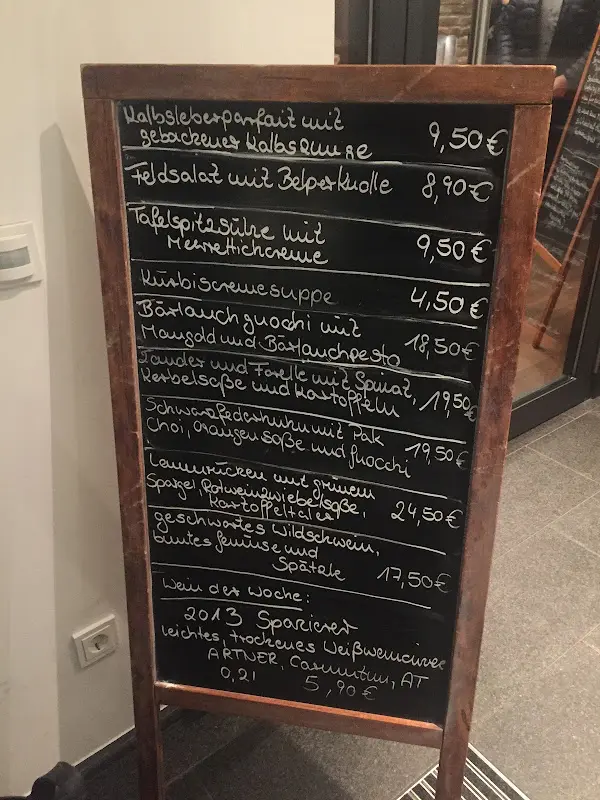 Kalbsleberparfait mit
gebackener Kalbszunge 9,50€
Feldsalat mit Belper Knolle 8,90€
Tafelspitzsülze mit
Meerrettichcreme 9,50€
Kürbiscremesuppe 4,50€
Bärlauchgnocchi mit
Mangold und Bärlauchpesto 18,50€
Zander und Forelle mit Spinat,
Kerbelsoße und Kartoffeln 19,50€
Schwarzfederhuhn mit Pak
Choi, Orangensoße und Gnocchi 19,50€
Lammrücken mit grünem
Spargel, Rotweinzwiebelsoße,
Kartoffeltaler 24,50€
geschmortes Wildschwein,
buntes Gemüse und
Spätzle 17,50€
Wein der Woche:
2013 Spazierer
leichtes, trockenes Weißweincuvee
ARTNER, Carnuntum, AT
0,2l 5,90€